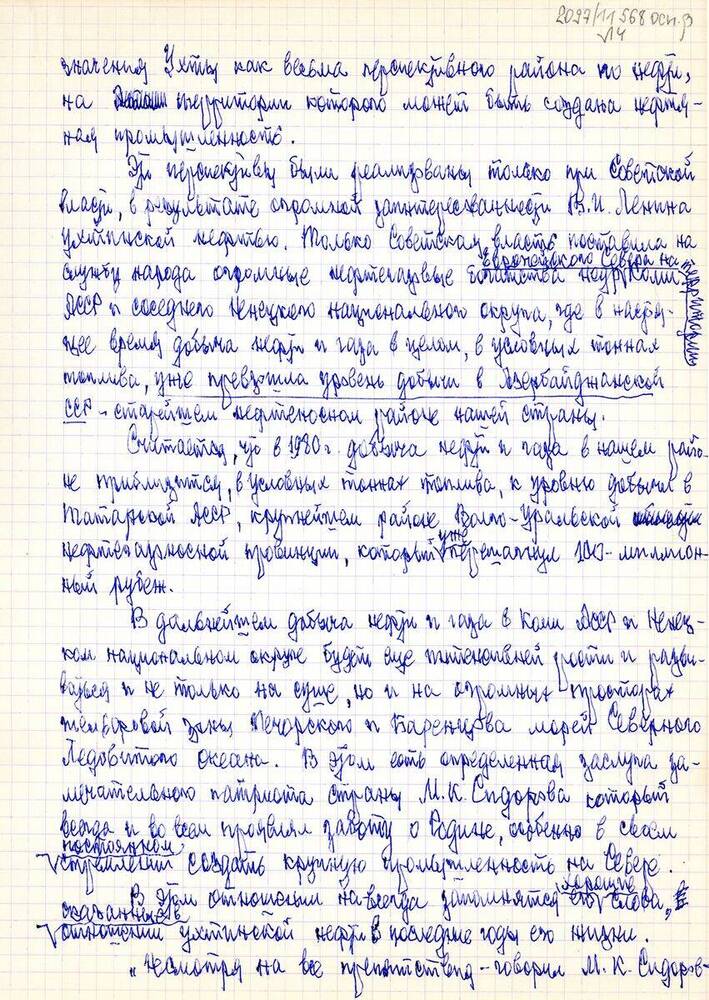 2097/11568 осн. ф
л4
значения Ухты как весьма перспективного района по нефти,
на территории которого может быть создана нефтя-
ная промышленность.
Эти перспективы были реализованы только при Советской
власти, в результате огромной заинтересованности В.И. Ленина
ухтинской нефтью. Только Советская власть поставила на
службу народа огромные нефтегазовые богатства недр Коми
Европейского Севера на территории
АССР и соседнего Ненецкого национального округа, где в настоя-
щее время добыча нефти и газа в целом, в условных тоннах
топлива, уже превзошла уровень добычи в Азербайджанской
ССР - старейшем нефтеносном районе нашей страны.
Считается, что в 1980 г. добыча нефти и газа в нашем райо-
не приблизится, в условных тоннах топлива, к уровню добычи в
Татарской АССР, крупнейшем районе Волго-Уральской
нефтегазоносной провинции, который уже перешагнул 100-миллион-
ный рубеж.
В дальнейшем добыча нефти и газа в Коми АССР и Ненец-
ком национальном округе будет еще интенсивней расти и разви-
ваться и не только на суше, но и на огромных просторах
шельфовой зоны Печорского и Баренцова морей Северного
Ледовитого океана. В этом есть определенная заслуга за-
мечательного патриота страны М.К. Сидорова который
всегда и во всем проявлял заботу о Родине, особенно в своем
постоянном
стремлении создать крупную промышленность на Севере.
В этом отношении навсегда запомнятся его хорошие слова,
сказанные в
отношении ухтинской нефти в последние годы его жизни.
"Несмотря на все препятствия - говорил М.К. Сидоров-